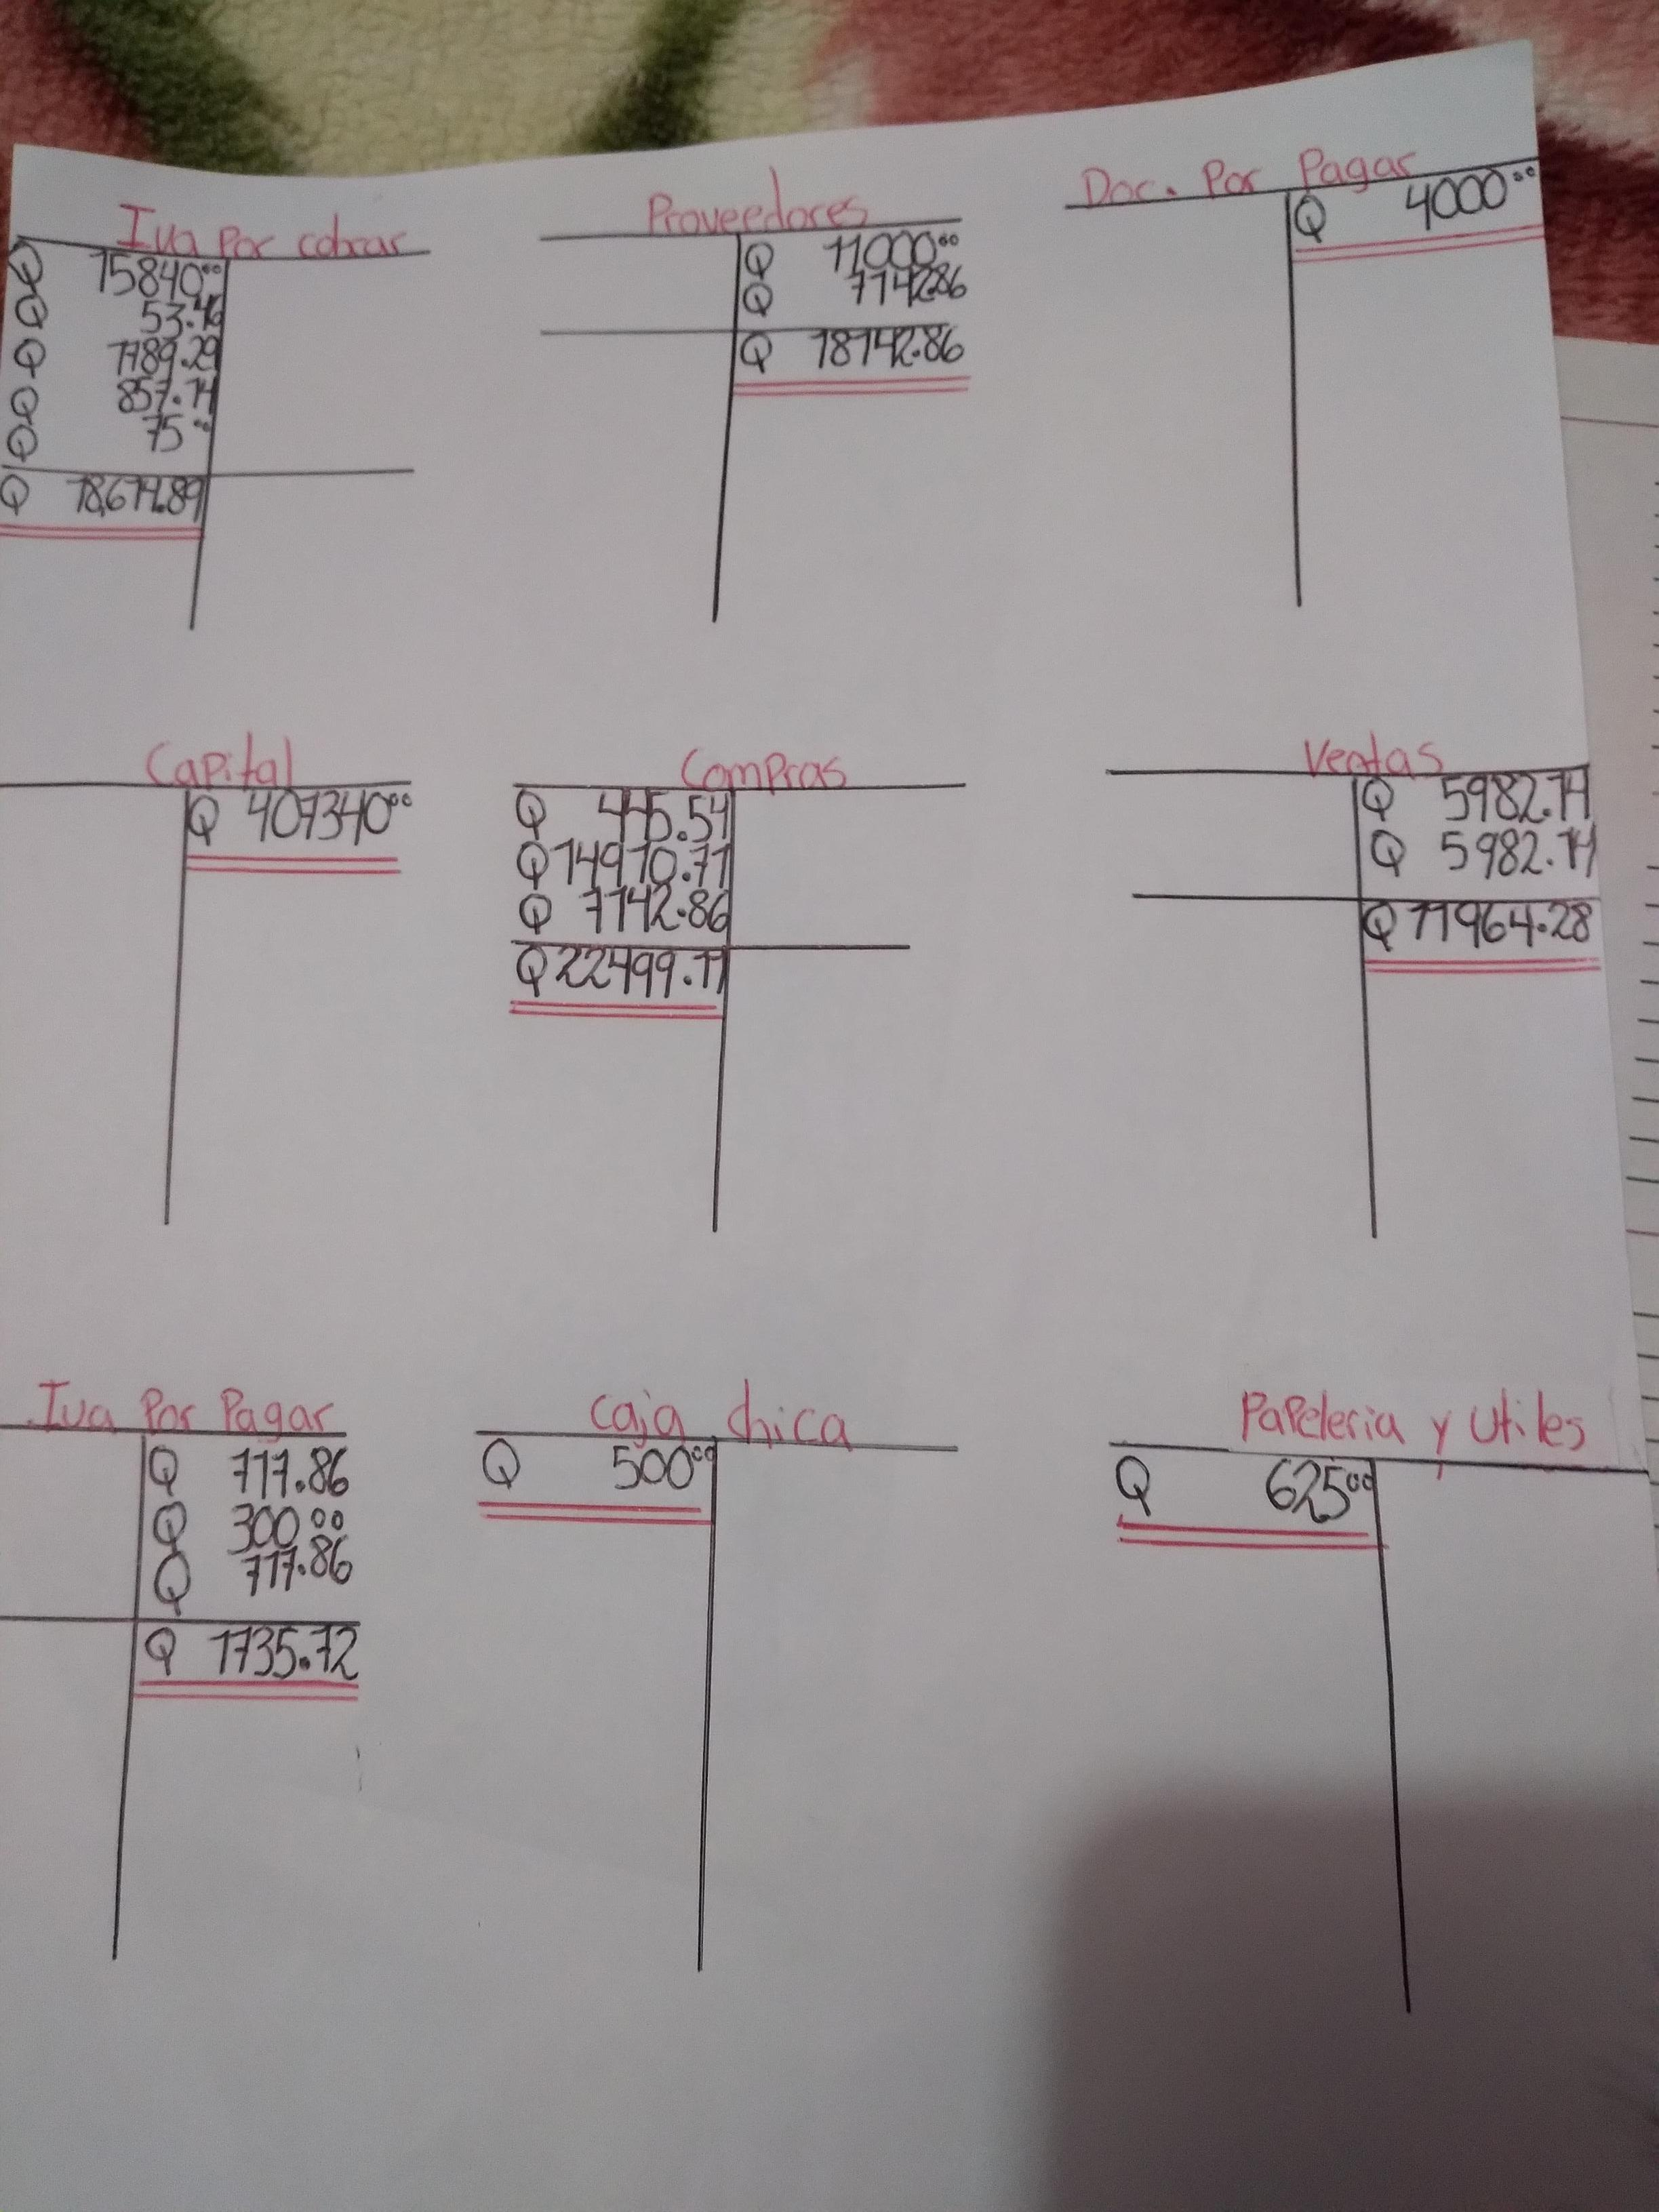 Iva Por cobrar
Q 15840.00
Q 53.46
Q 1789.29
Q 857.14
Q 75.00
Q 18,614.89
Proveedores
Q 11000.00
Q 7142.86
Q 18142.86
Doc. Por Pagar
Q 4000.00
Capital
Q 407340.00
Compras
Q 445.54
Q 14910.71
Q 7142.86
Q 22499.11
Ventas
Q 5982.14
Q 5982.14
Q 11964.28
Iva Por Pagar
Q 717.86
Q 300.00
Q 717.86
Q 1735.72
Caja chica
Q 500.00
Papeleria y utiles
Q 625.00